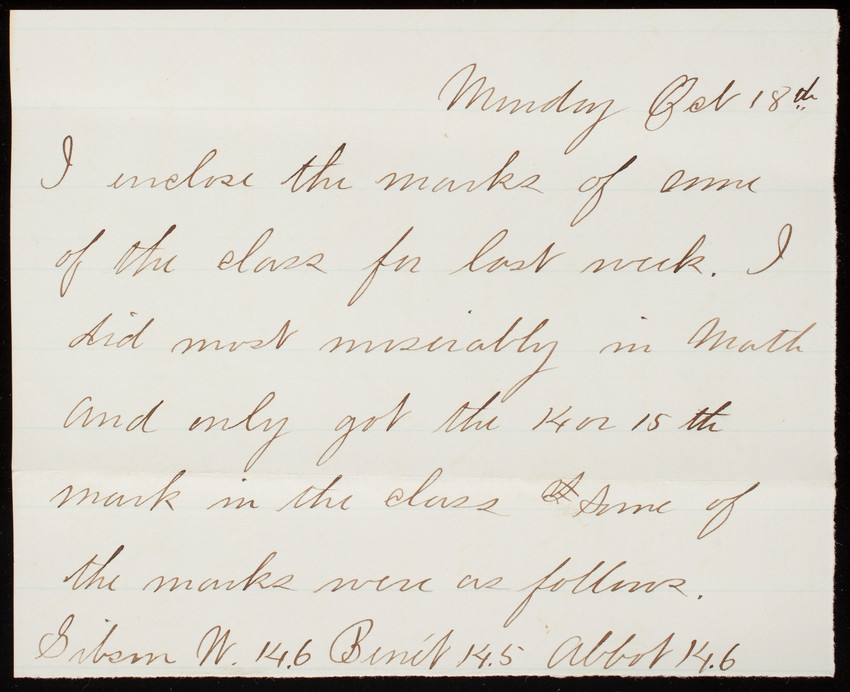 Monday Oct 18th
I enclose the marks of some
of the class for last week. I
did most miserably in Math
and only got the 14 or 15 th
mark in the class Some of
the marks were as follows.
Gibson W. 14.6 Benét 14.5 Abbot 14.6